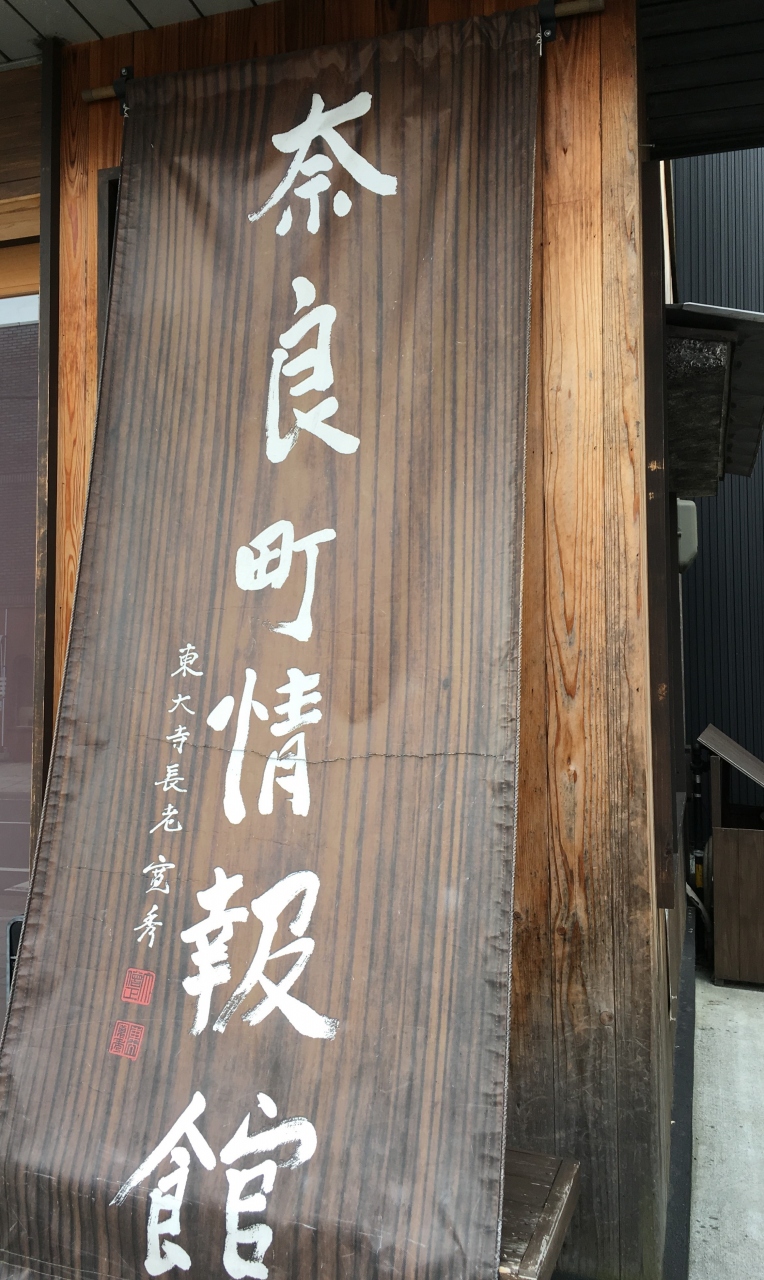 奈良町情報館
東大寺長老 寛秀